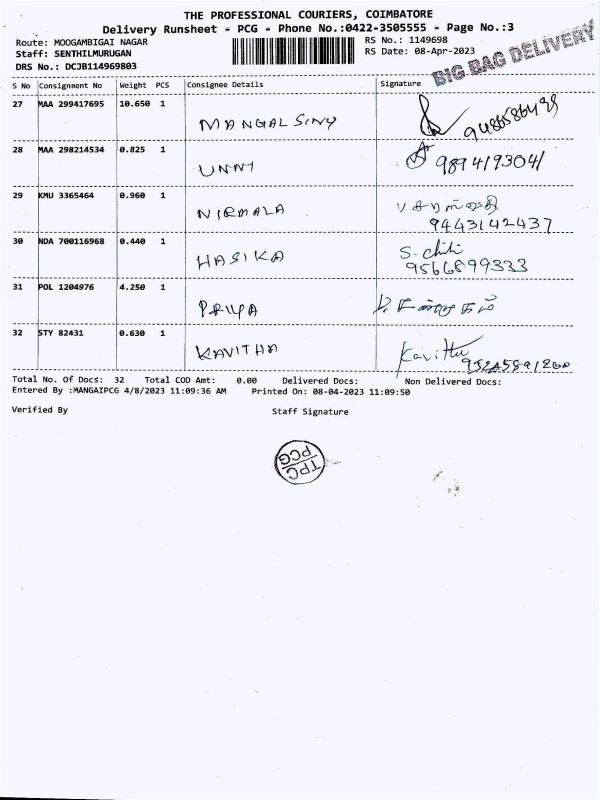 THE PROFESSIONAL COURIERS, COIMBATORE
Delivery Runsheet - PCG - Phone No.:0422-3505555 - Page No.:3
Route: MOOGAMBIGAI NAGAR RS No.: 1149698
Staff: SENTHILMURUGAN RS Date: 08-Apr-2023
DRS No.: DCJB114969803
BIG BAG DELIVERY
S No Consignment No Weight PCS Consignee Details Signature
27 MAA 299417695 10.650 1
MANGAL SINGH
28 MAA 298214534 0.825 1
UNNI 9894193041
29 KMU 3365464 0.960 1
NIRMALA
9443142437
30 NDA 700116968 0.440 1
HASIKA S. chiti
9566899333
31 POL 1204976 4.250 1
PRIYA
32 STY 82431 0.630 1
KAVITHA Kavitha
Total No. Of Docs: 32 Total COD Amt: 0.00 Delivered Docs: Non Delivered Docs:
Entered By :MANGAIPCG 4/8/2023 11:09:36 AM Printed On: 08-04-2023 11:09:50
Verified By Staff Signature
TPC
PCG